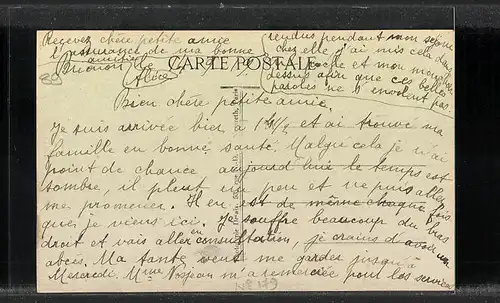 Recevez chère petite amie
l'assurance de ma bonne
amitié
Alice
CARTE POSTALE
rendus pendant mon séjour
chez elle j'ai mis cela dans
poche et mon mouchoir
dessus afin que ces belles
paroles ne s'envolent pas.
Bien chère petite amie.
Je suis arrivée bien à et ai trouvé ma
famille en bonne santé. Malgré cela je n'ai
point de chance aujourd'hui le temps est
sombre, il pleut un peu et ne puis aller
me promener. Il en est de même chaque fois
que je viens ici. Je souffre beaucoup du bras
droit et vais aller en consultation, je crains d'avoir un
abcès. Ma tante veut me garder jusqu'à
Mercredi. Mme m'a remerciée pour les services
N° 179